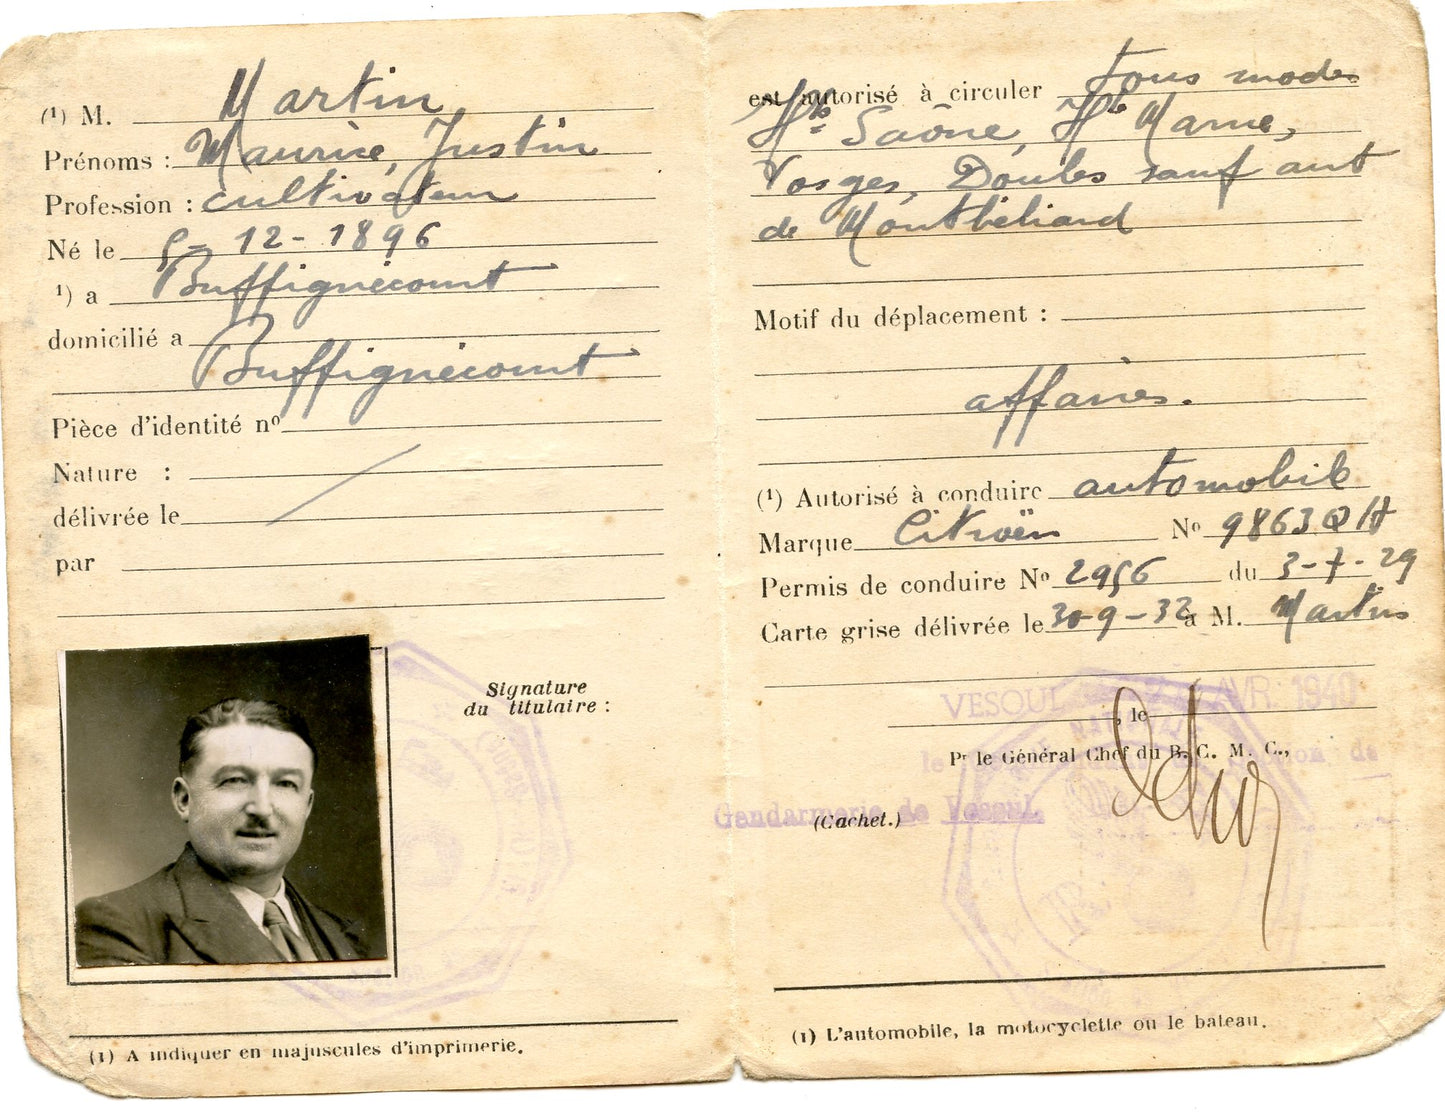 (1) M. Martin
Prénoms : Maurice, Justin
Profession : cultivateur
Né le 5-12-1896
1) a Buffignécourt
domicilié a
Buffignécourt
Pièce d'identité nº
Nature :
délivrée le
par
Signature
du titulaire :
(1) A indiquer en majuscules d'imprimerie.
est autorisé à circuler tous modes
Hte Saône, Hte Marne,
Vosges, Doubs sauf arrt
de Montbéliard
Motif du déplacement :
affaires.
(1) Autorisé à conduire automobile
Marque Citroën Nº 9863 QH
Permis de conduire Nº 2956 du 3-7-29
Carte grise délivrée le 30-9-32 a M. Martin
VESOUL, le AVR. 1940
Pr le Général Chef du B. C. M. C.,
Gendarmerie de Vesoul
(Cachet.)
(1) L'automobile, la motocyclette ou le bateau.